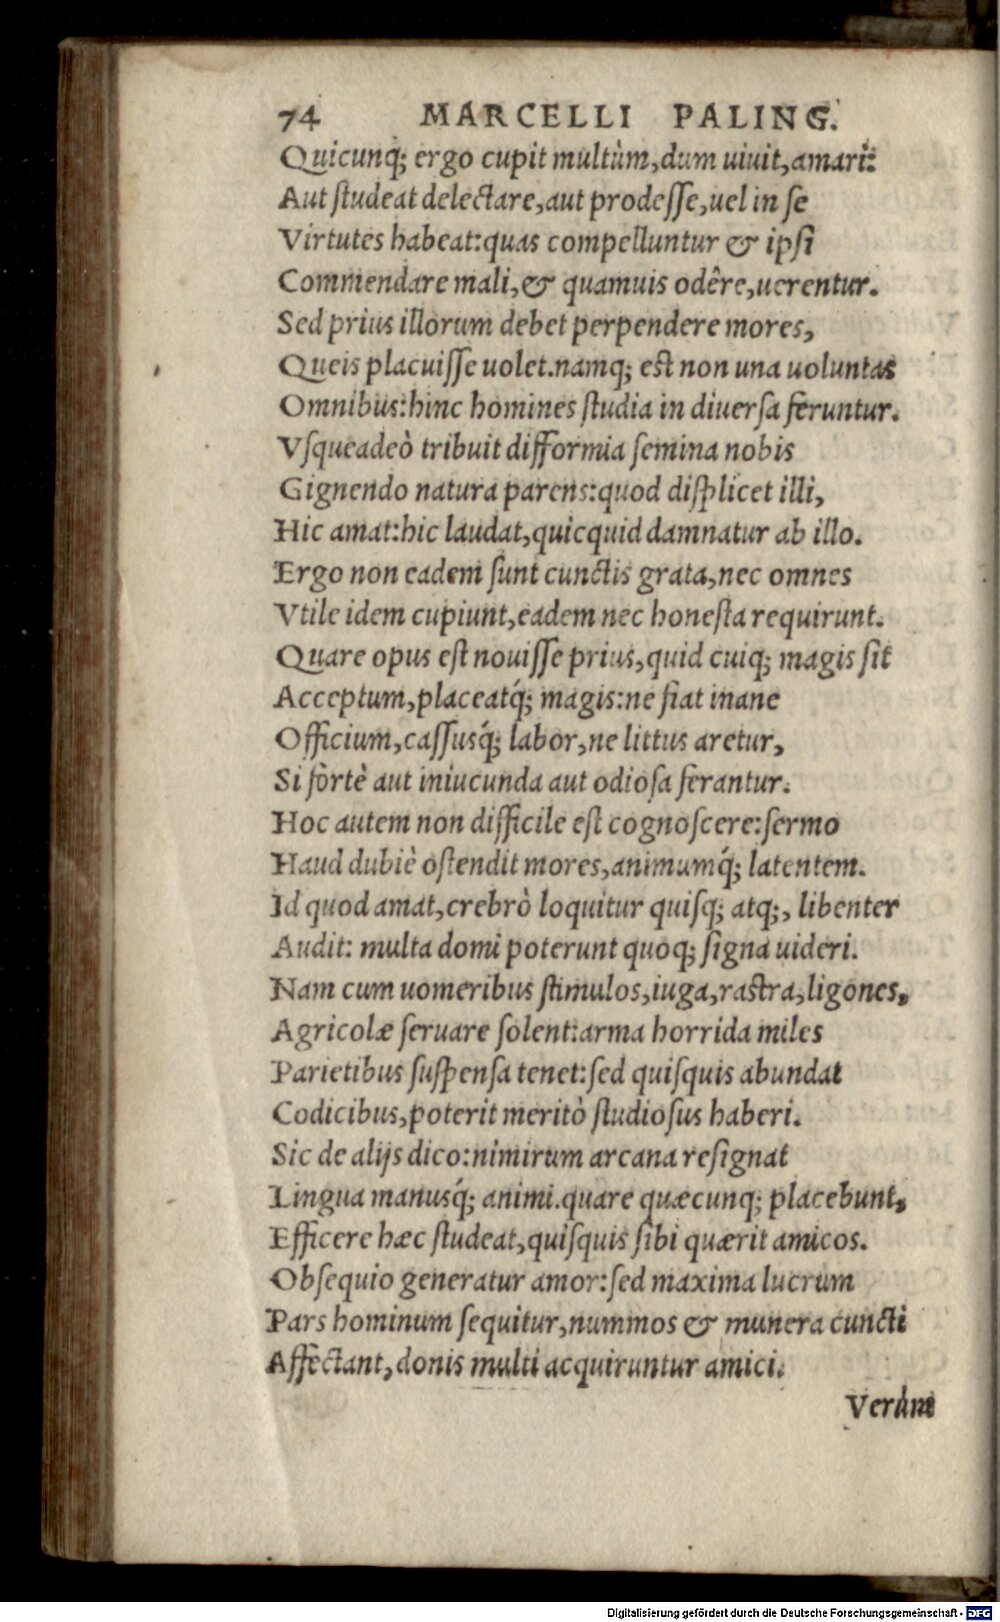 74 MARCELLI PALING.
Quicunq; ergo cupit multùm, dum uiuit, amari:
Aut ſtudeat delectare, aut prodeſſe, uel in ſe
Virtutes habeat: quas compelluntur & ipſi
Commendare mali, & quamuis odêre, uerentur.
Sed prius illorum debet perpendere mores,
Queis placuiſſe uolet. namq; eſt non una uoluntas
Omnibus: hinc homines ſtudia in diuerſa feruntur.
Vſqueadeò tribuit difformia ſemina nobis
Gignendo natura parens: quod diſplicet illi,
Hic amat: hic laudat, quicquid damnatur ab illo.
Ergo non eadem ſunt cunctis grata, nec omnes
Vtile idem cupiunt, eadem nec honeſta requirunt.
Quare opus eſt nouiſſe prius, quid cuiq; magis ſit
Acceptum, placeatq́; magis: ne fiat inane
Officium, caſſusq́; labor, ne littus aretur,
Si fortè aut iniucunda aut odioſa ferantur.
Hoc autem non difficile eſt cognoſcere: ſermo
Haud dubiè oſtendit mores, animumq́; latentem.
Id quod amat, crebrò loquitur quiſq; atq;, libenter
Audit: multa domi poterunt quoq; ſigna uideri.
Nam cum uomeribus ſtimulos, iuga, raſtra, ligones,
Agricolæ ſeruare ſolent: arma horrida miles
Parietibus ſuſpenſa tenet: ſed quiſquis abundat
Codicibus, poterit meritò ſtudioſus haberi.
Sic de alijs dico: nimirum arcana reſignat
Lingua manusq́; animi. quare quæcunq; placebunt,
Efficere hæc ſtudeat, quiſquis ſibi quærit amicos.
Obſequio generatur amor: ſed maxima lucrum
Pars hominum ſequitur, nummos & munera cuncti
Affectant, donis multi acquiruntur amici.
Verùm
Digitalisierung gefördert durch die Deutsche Forschungsgemeinschaft - DFG